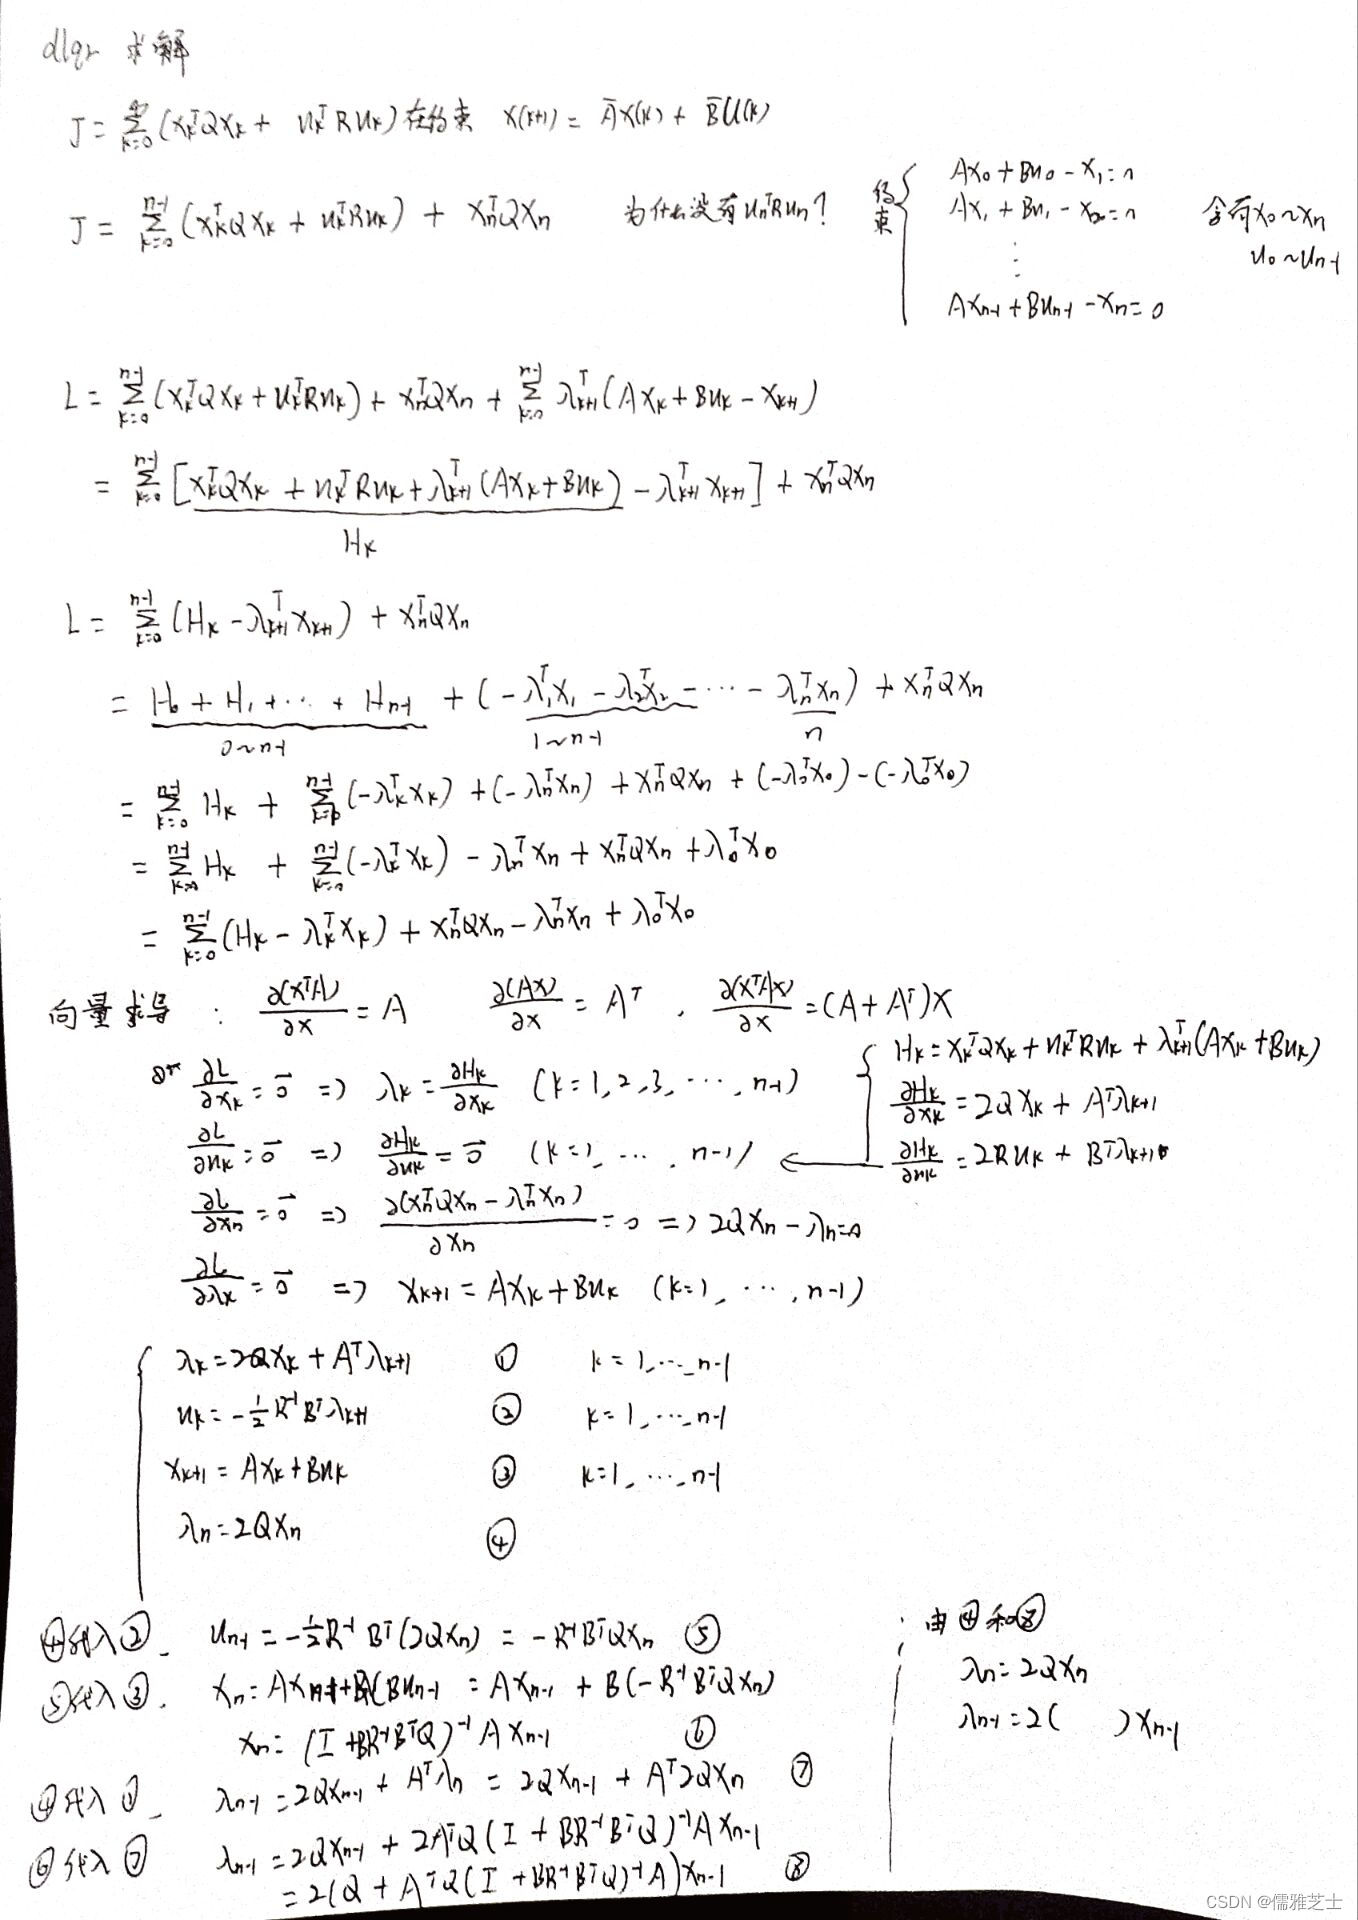 dlqr 求解
J = ∑_{k=0}^{∞} (x_k^T Q x_k + u_k^T R u_k) 在约束 x(k+1) = Āx(k) + B̄u(k)
J = ∑_{k=0}^{n-1} (x_k^T Q x_k + u_k^T R u_k) + x_n^T Q x_n 为什么没有 u_n^T R u_n?
约束 { Ax_0 + Bu_0 - x_1 = 0
Ax_1 + Bu_1 - x_2 = 0
⋮
Ax_{n-1} + Bu_{n-1} - x_n = 0
含有 x_0 ~ x_n
u_0 ~ u_{n-1}
L = ∑_{k=0}^{n-1} (x_k^T Q x_k + u_k^T R u_k) + x_n^T Q x_n + ∑_{k=0}^{n-1} λ_{k+1}^T (Ax_k + Bu_k - x_{k+1})
= ∑_{k=0}^{n-1} [x_k^T Q x_k + u_k^T R u_k + λ_{k+1}^T (Ax_k + Bu_k) - λ_{k+1}^T x_{k+1}] + x_n^T Q x_n
H_k
L = ∑_{k=0}^{n-1} (H_k - λ_{k+1}^T x_{k+1}) + x_n^T Q x_n
= H_0 + H_1 + ⋯ + H_{n-1} + (-λ_1^T x_1 - λ_2^T x_2 - ⋯ - λ_n^T x_n) + x_n^T Q x_n
0~n-1 1~n-1 n
= ∑_{k=0}^{n-1} H_k + ∑_{k=0}^{n-1} (-λ_k^T x_k) + (-λ_n^T x_n) + x_n^T Q x_n + (-λ_0^T x_0) - (-λ_0^T x_0)
= ∑_{k=0}^{n-1} H_k + ∑_{k=0}^{n-1} (-λ_k^T x_k) - λ_n^T x_n + x_n^T Q x_n + λ_0^T x_0
= ∑_{k=0}^{n-1} (H_k - λ_k^T x_k) + x_n^T Q x_n - λ_n^T x_n + λ_0^T x_0
向量求导: ∂(x^T A)/∂x = A ∂(Ax)/∂x = A^T, ∂(x^T A x)/∂x = (A + A^T)x
∂L/∂x_k = 0⃗ => λ_k = ∂H_k/∂x_k (k = 1, 2, 3, ⋯, n-1)
∂L/∂u_k = 0⃗ => ∂H_k/∂u_k = 0⃗ (k = 1, ⋯, n-1) ←
{ H_k = x_k^T Q x_k + u_k^T R u_k + λ_{k+1}^T (Ax_k + Bu_k)
∂H_k/∂x_k = 2Qx_k + A^T λ_{k+1}
∂H_k/∂u_k = 2Ru_k + B^T λ_{k+1}
∂L/∂x_n = 0⃗ => ∂(x_n^T Q x_n - λ_n^T x_n)/∂x_n = 0 => 2Qx_n - λ_n = 0
∂L/∂λ_k = 0⃗ => x_{k+1} = Ax_k + Bu_k (k = 1, ⋯, n-1)
{ λ_k = 2Qx_k + A^T λ_{k+1} ① k = 1, ⋯, n-1
u_k = -½ R^{-1} B^T λ_{k+1} ② k = 1, ⋯, n-1
x_{k+1} = Ax_k + Bu_k ③ k = 1, ⋯, n-1
λ_n = 2Qx_n ④
④代入②. u_{n-1} = -½ R^{-1} B^T (2Qx_n) = -R^{-1} B^T Q x_n ⑤
⑤代入③. x_n = Ax_{n-1} + Bu_{n-1} = Ax_{n-1} + B(-R^{-1} B^T Q x_n)
x_n = (I + BR^{-1} B^T Q)^{-1} A x_{n-1} ⑥
④代入①. λ_{n-1} = 2Qx_{n-1} + A^T λ_n = 2Qx_{n-1} + A^T 2Qx_n ⑦
⑥代入⑦ λ_{n-1} = 2Qx_{n-1} + 2A^T Q (I + BR^{-1} B^T Q)^{-1} A x_{n-1}
= 2(Q + A^T Q (I + BR^{-1} B^T Q)^{-1} A) x_{n-1} ⑧
由④和⑧
λ_n = 2Qx_n
λ_{n-1} = 2( ) x_{n-1}
CSDN @儒雅芝士